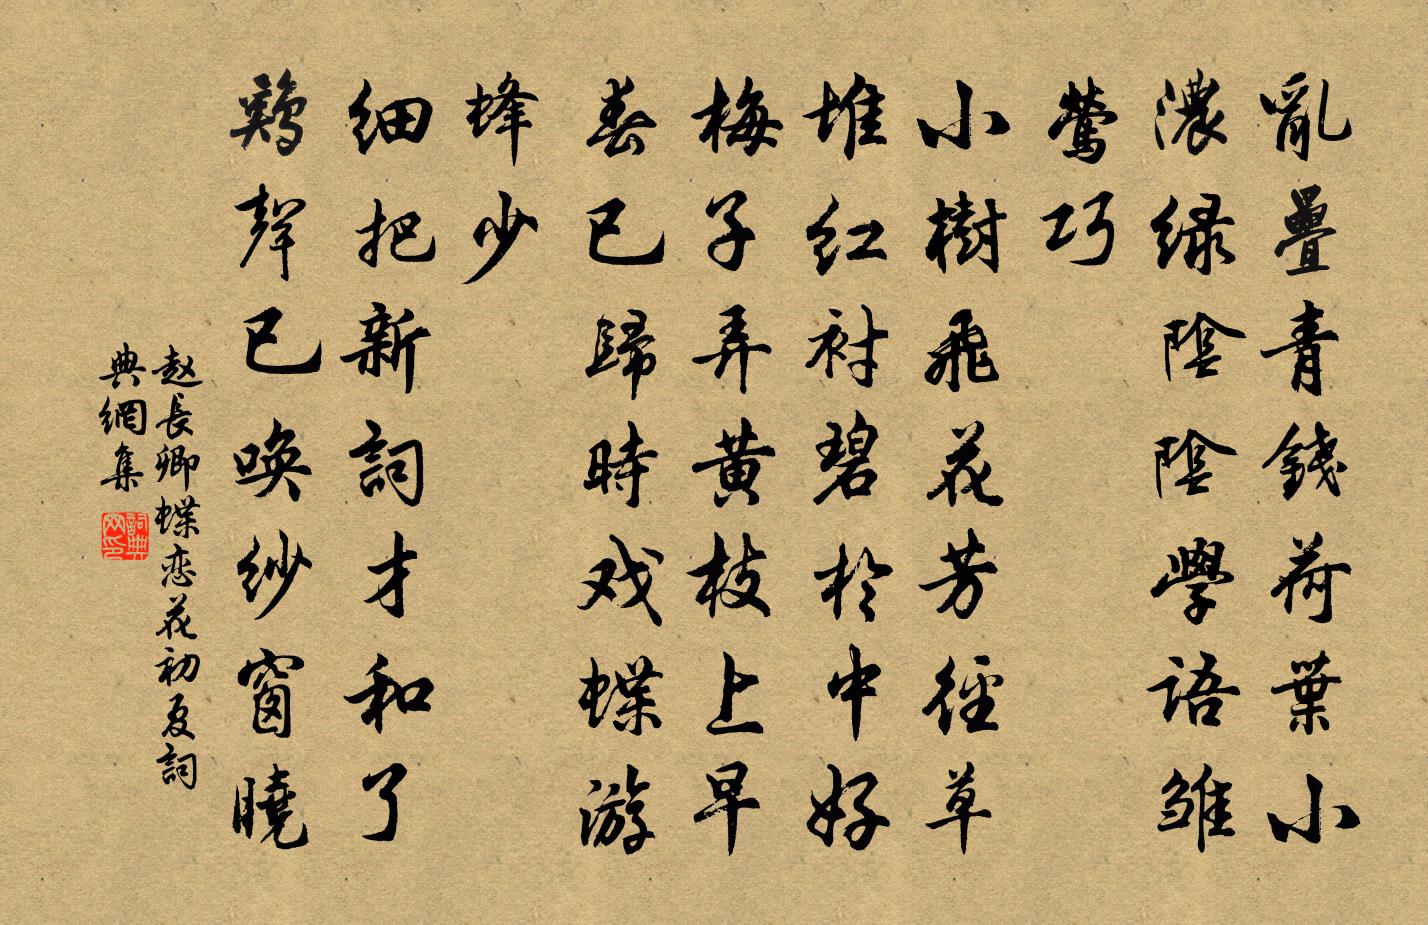 亂疊青錢荷葉小
濃綠陰陰學語雛
鶯巧
小樹飛花芳徑草
堆紅衬碧於中好
梅子弄黄枝上早
春已歸時戏蝶游
蜂少
細把新詞才和了
鷄聲已唤紗窗曉
赵長卿蝶恋花初夏詞
典網集
詞典
网印